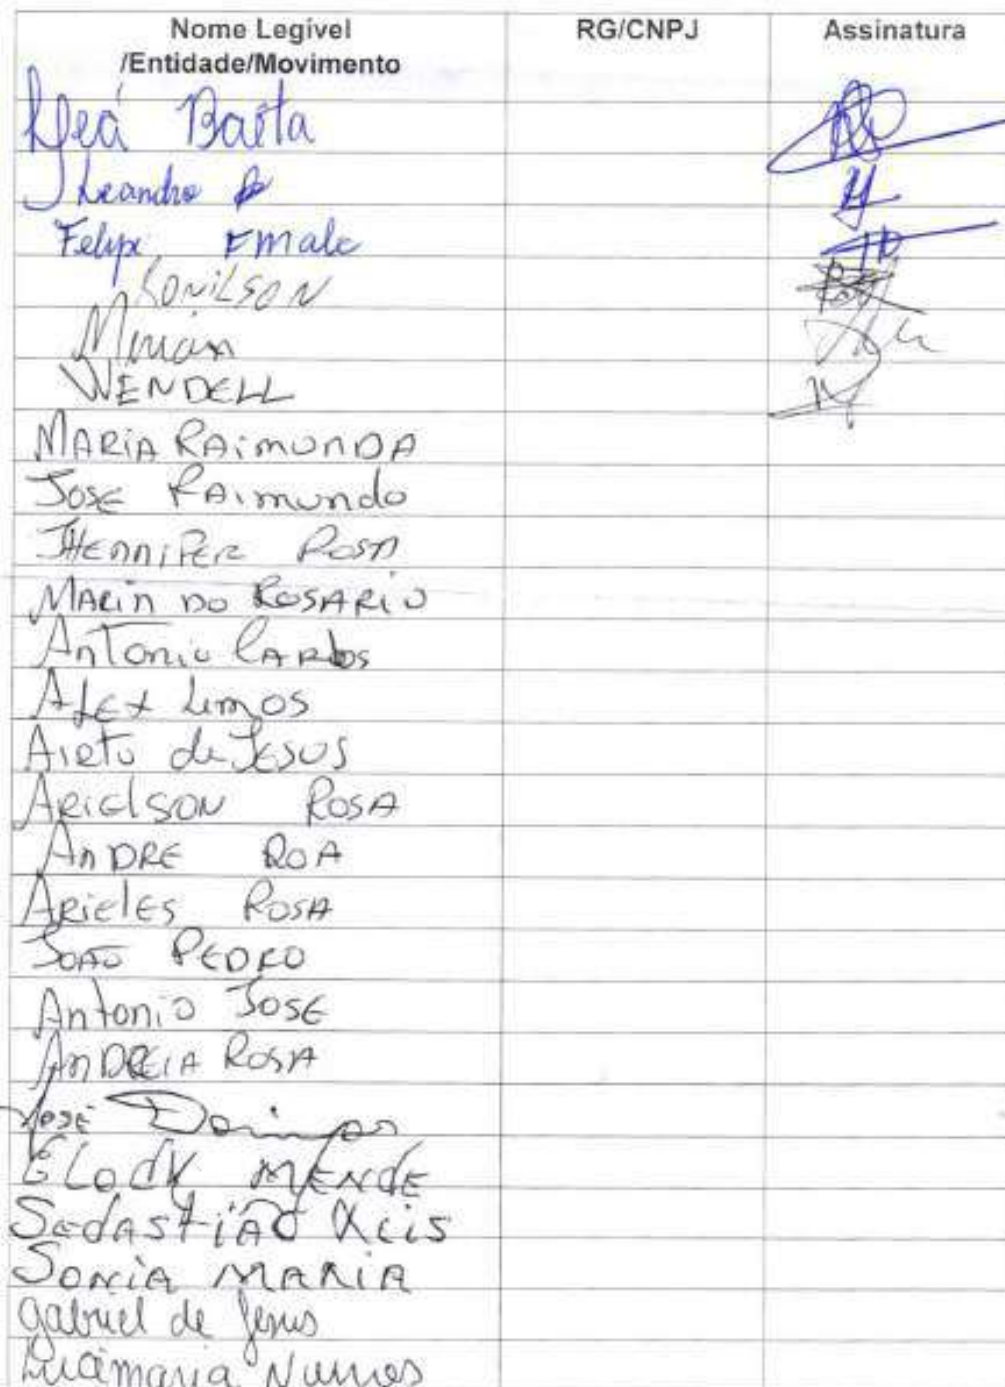 Nome Legível
/Entidade/Movimento
RG/CNPJ
Assinatura
Baêta
Leandro
Felipe
RONILSON
Mirian
WENDELL
MARIA RAIMUNDA
JOSE RAimundo
JHENNIFER ROSA
MARIA DO ROSARIO
Antonio CARLOS
ALEX Lemos
de JESUS
ARIELSON ROSA
ANDRE ROA
ARIELES ROSA
JOÃO PEDRO
Antonio JOSE
ANDREIA ROSA
JOSÉ Domingos
MENDE
SEBASTIÃO REIS
SONIA MARIA
gabriel de Jesus
Lucimaria Nunes